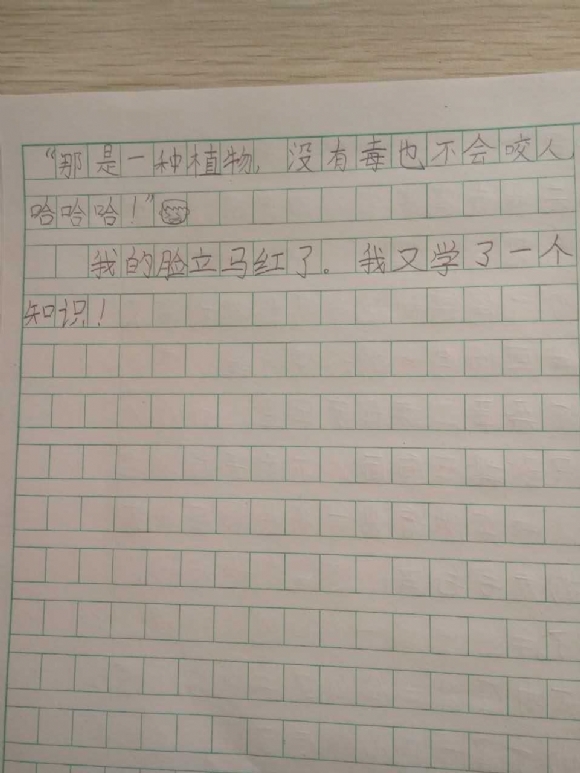 “那是一种植物，没有毒也不会咬人
哈哈哈！”
我的脸立马红了。我又学了一个
知识！